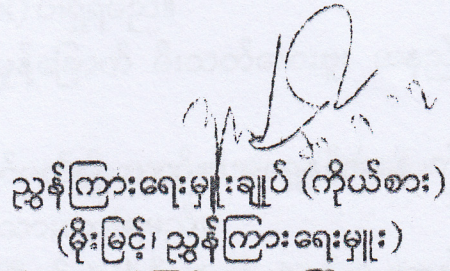 ညွှန်ကြားရေးမှူးချုပ် (ကိုယ်စား)
(မိုးမြင့်၊ ညွှန်ကြားရေးမှူး)